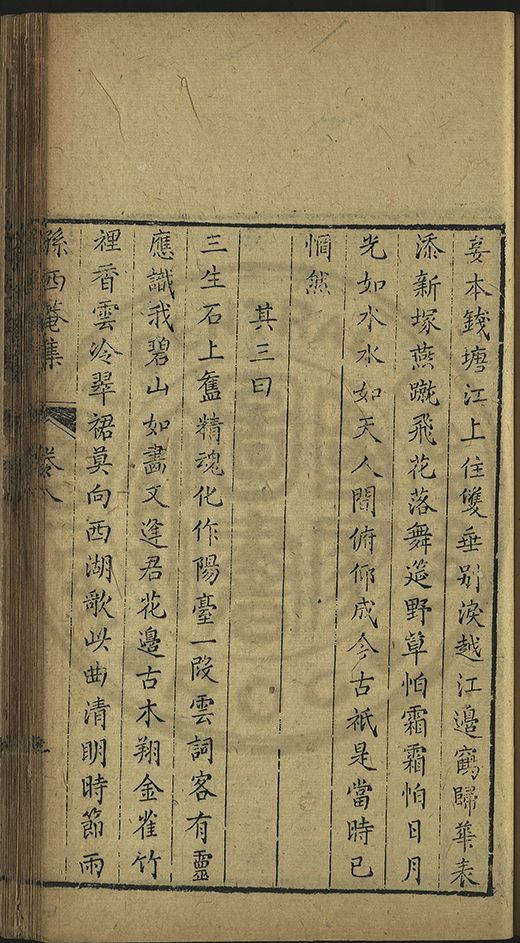 妾本錢塘江上住雙垂别淚越江邊鶴歸華表
添新塚燕蹴飛花落舞筵野草怕霜霜怕日月
光如水水如天人間俯仰成今古祇是當時已
惘然
其三曰
三生石上舊精魂化作陽臺一段雲詞客有靈
應識我碧山如畫又逢君花邊古木翔金雀竹
裡香雲冷翠裙莫向西湖歌此曲清明時節雨
孫西菴集 卷八